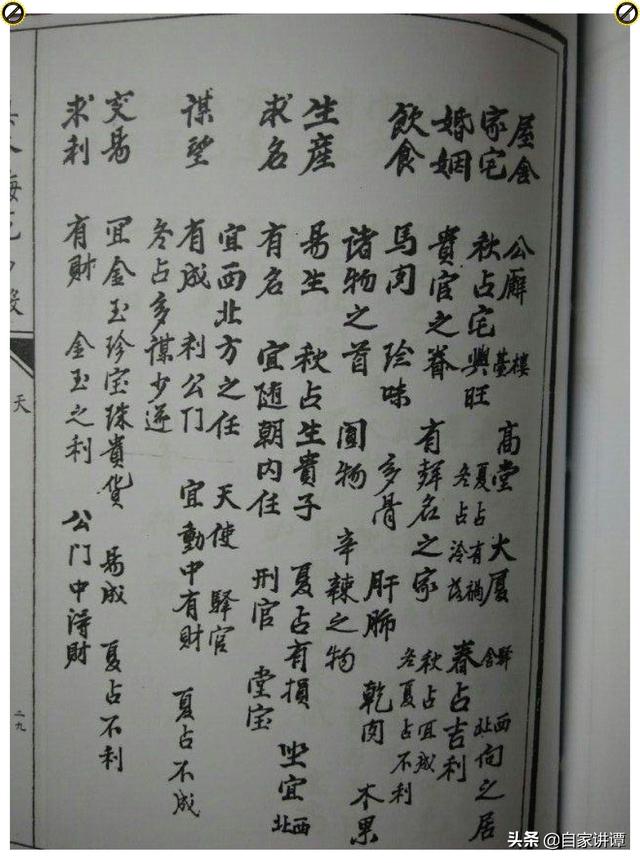 屋舍 公廨 樓臺 高堂 大厦 驛舍 西北向之居
家宅 秋占宅興旺 夏占有禍 冬占冷落 春占吉利
婚姻 貴官之眷 有聲名之家 秋占宜成 冬夏占不利
飲食 馬肉 珍味 多骨 肝肺 乾肉 木果
諸物之首 圓物 辛辣之物
生產 易生 秋占生貴子 夏占有損 坐宜西北
求名 有名 宜随朝内任 刑官 堂宝
宜西北方之任 天使 驛官
謀望 有成 利公门 宜動中有財 夏占不成
冬占多謀少遂
交易 宜金玉珍宝珠貴貨 易成 夏占不利
求利 有財 金玉之利 公门中得財
天
二九
头条 @自家讲谭